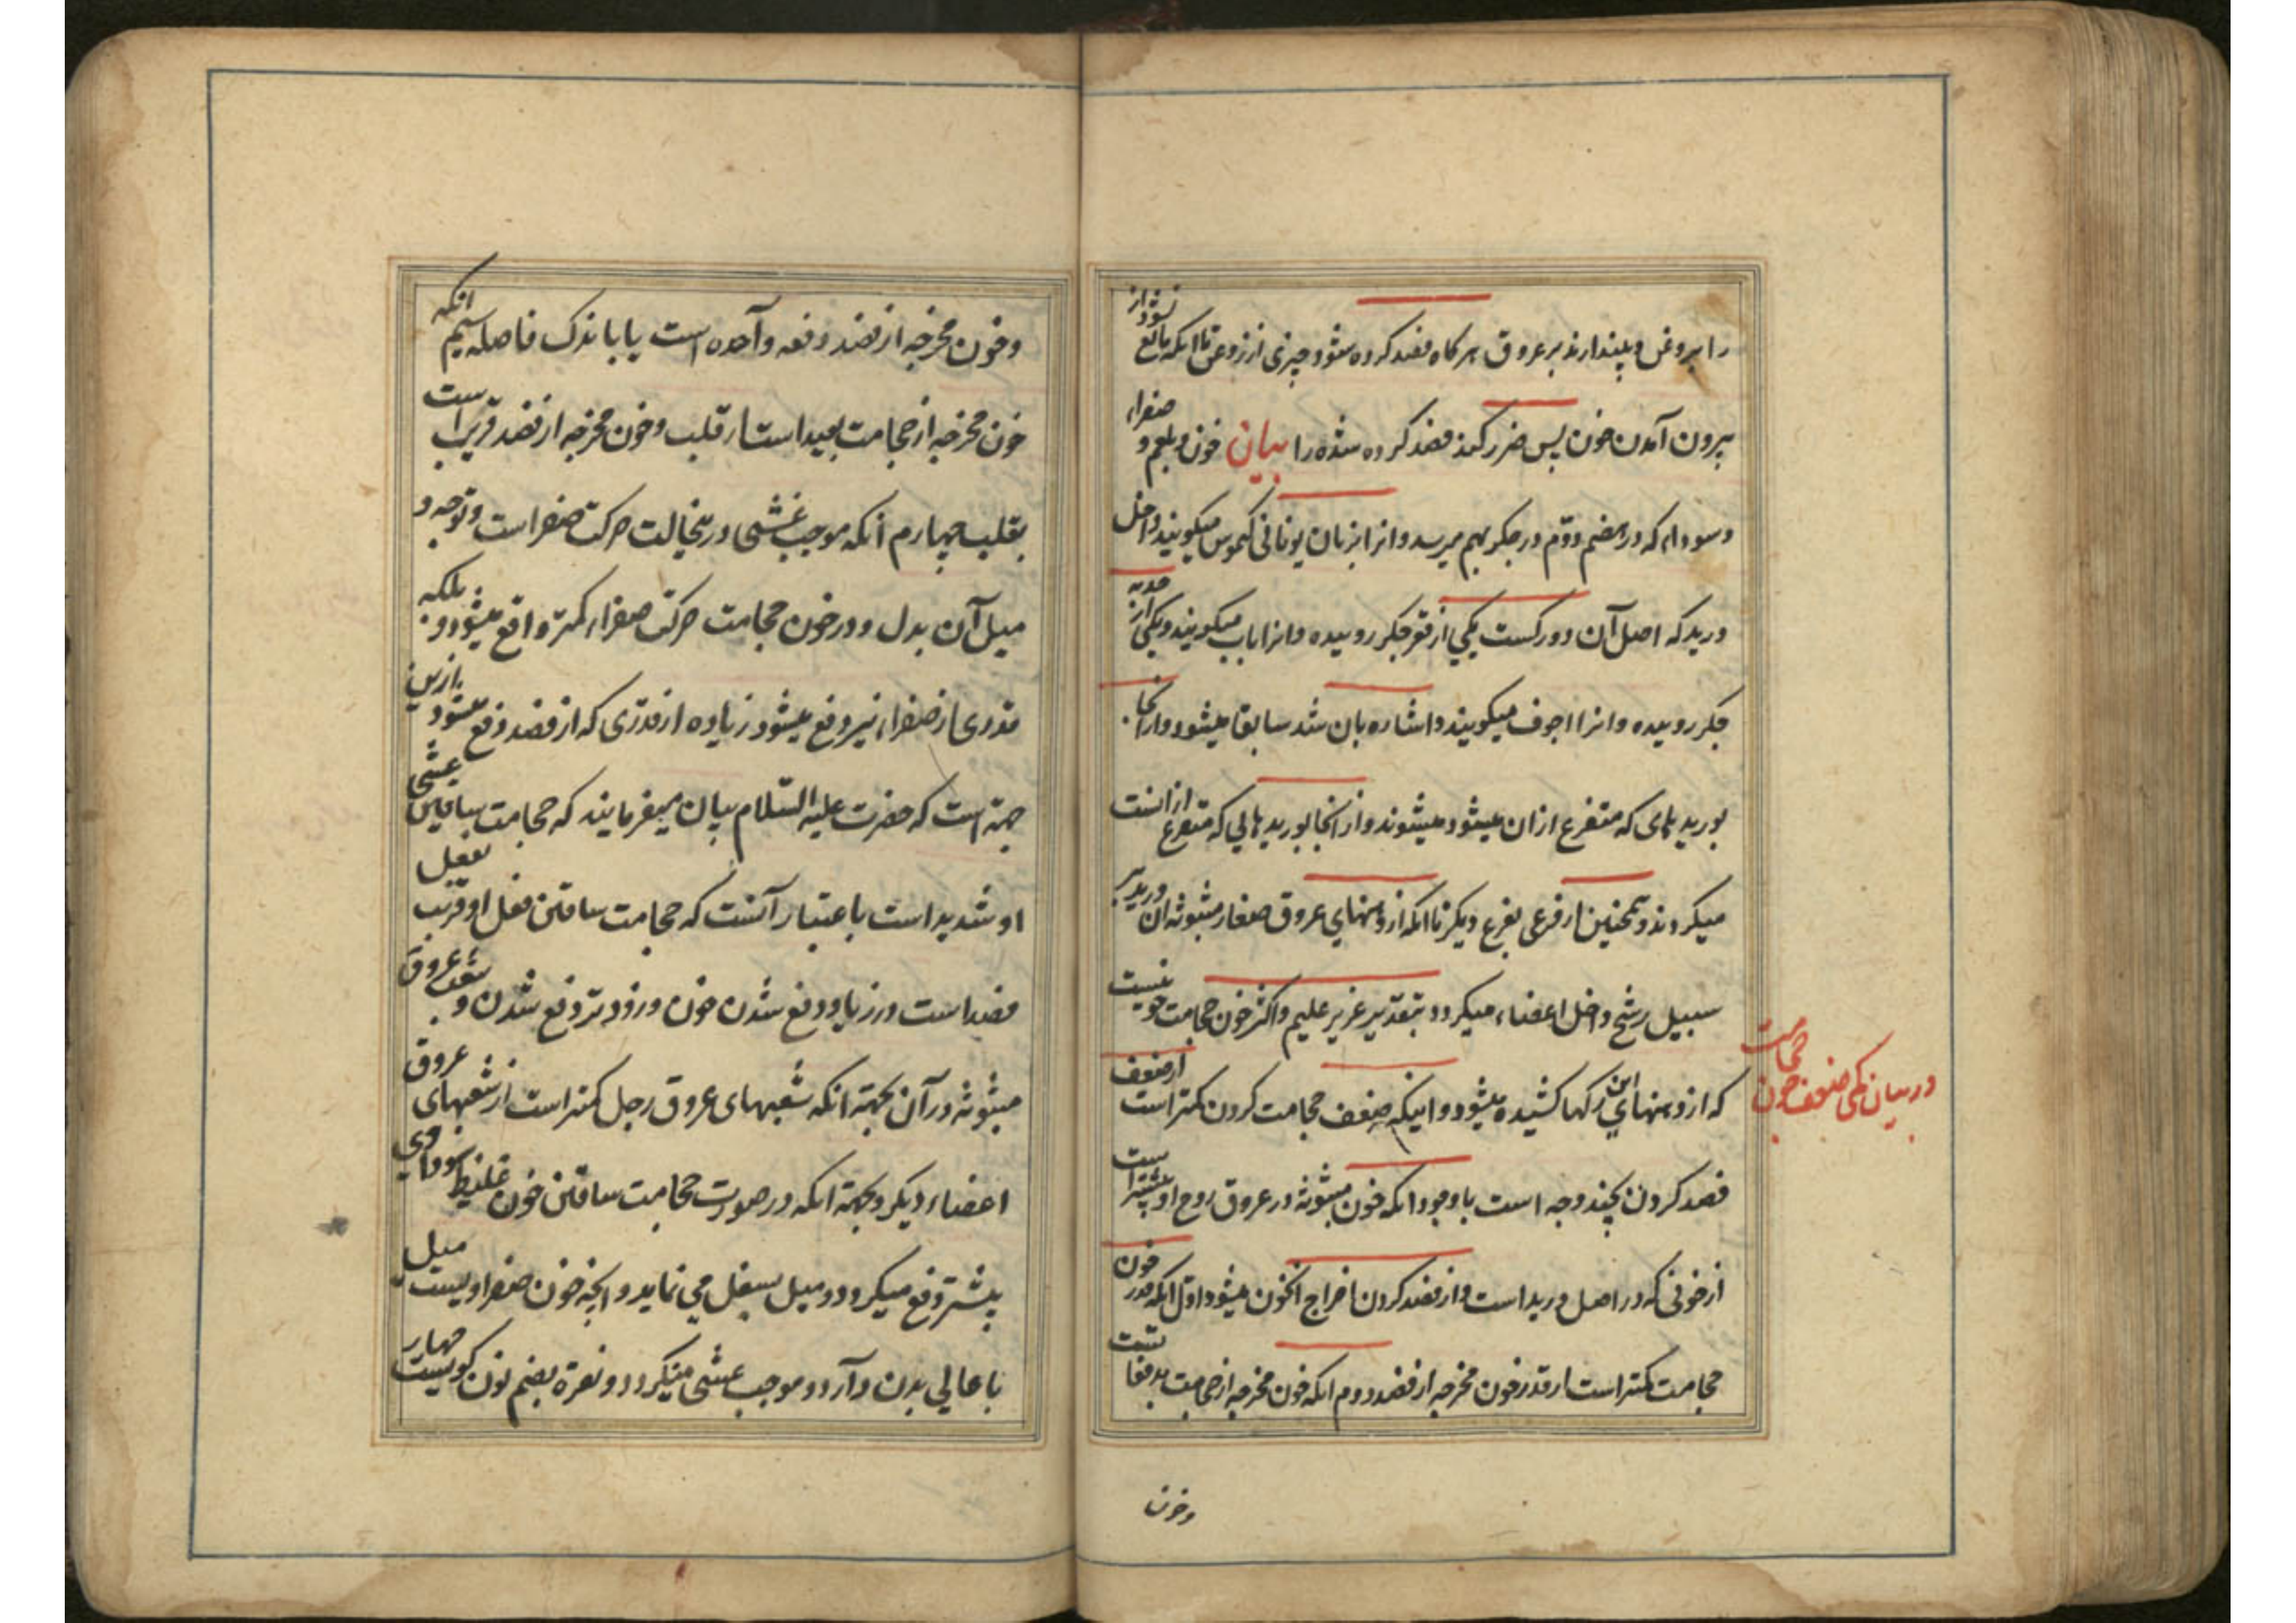 را بروغن و بیندازند بر عروق هر کاه فصد کرده شود چیزی از روغن تا انکه مانع نشود از
بیرون آمدن خون پس ضرر کند فصد کرده شده را بیان خون و بلغم و صفراء
و سوداء که در هضم دوّم در جکر بهم میرسد و انرا بزبان یونانی کیموس میکویند داخل
ورید که اصل آن دو رکست یکی از قعر جکر روییده و انرا باب میکویند و یکی از حدبه
جکر روییده و انرا اجوف میکویند و اشاره بان شد سابقا میشود و از انجا
بورید های که متفرع ازان میشود میشوند و از انجا بورید هایی که متفرع از انست
میکردند و همچنین از فرعی بفرع دیکر تا انکه از دهنهای عروق صغار مبثوثه ان ورید بر
سبیل رشح داخل اعضاء میکردد بتقدیر عزیز علیم و اکثر خون حجامت خونیست
که از دهنهای این رکها کشیده میشود و اینکه ضعف حجامت کردن کمتر است از ضعف
فصد کردن بچند وجه است با وجود انکه خون مبثوثه در عروق روح او بیشتر است
از خونی که در اصل ورید است و از فصد کردن اخراج انخون میشود اول انکه قدر خون
حجامت کمتر است از قدر خون مخرجه از فصد دوم انکه خون مخرجه از حجامت بدفعاتست
در بیان کمی ضعف خون حجامت
و خون
و خون مخرجه از فصد دفعه واحده است یا باندک فاصله سیم انکه
خون مخرجه از حجامت بعید است از قلب و خون مخرجه از فصد قریب است
بقلب چهارم انکه موجب غشی درینحالت حرکت صفراست و توجه و
میل آن بدل و در خون حجامت حرکت صفراء کمتر واقع میشود و بلکه
قدری از صفراء نیز دفع میشود زیاده از قدری که از فصد دفع میشود بازین
جهة است که حضرت علیه السّلام بیان میفرمایند که حجامت ساقین غشی
او شدید است باعتبار آنست که حجامت ساقین فعل او قریب بفعل
فصد است در زیاد دفع شدن خون و زودتر دفع شدن و بضعف عروق
مبثوثه در آن بجهة انکه شعبهای عروق رجل کمتر است از شعبهای عروق
اعضاء دیکر و بجهة انکه در صورت حجامت ساقین خون غلیظ سوداوی
بیشتر دفع میکردد و میل بسفل می نماید و انچه خون صفراویست میل
با عالی بدن دارد و موجب غشی میکردد و نعرة بضم نون کویست مهار